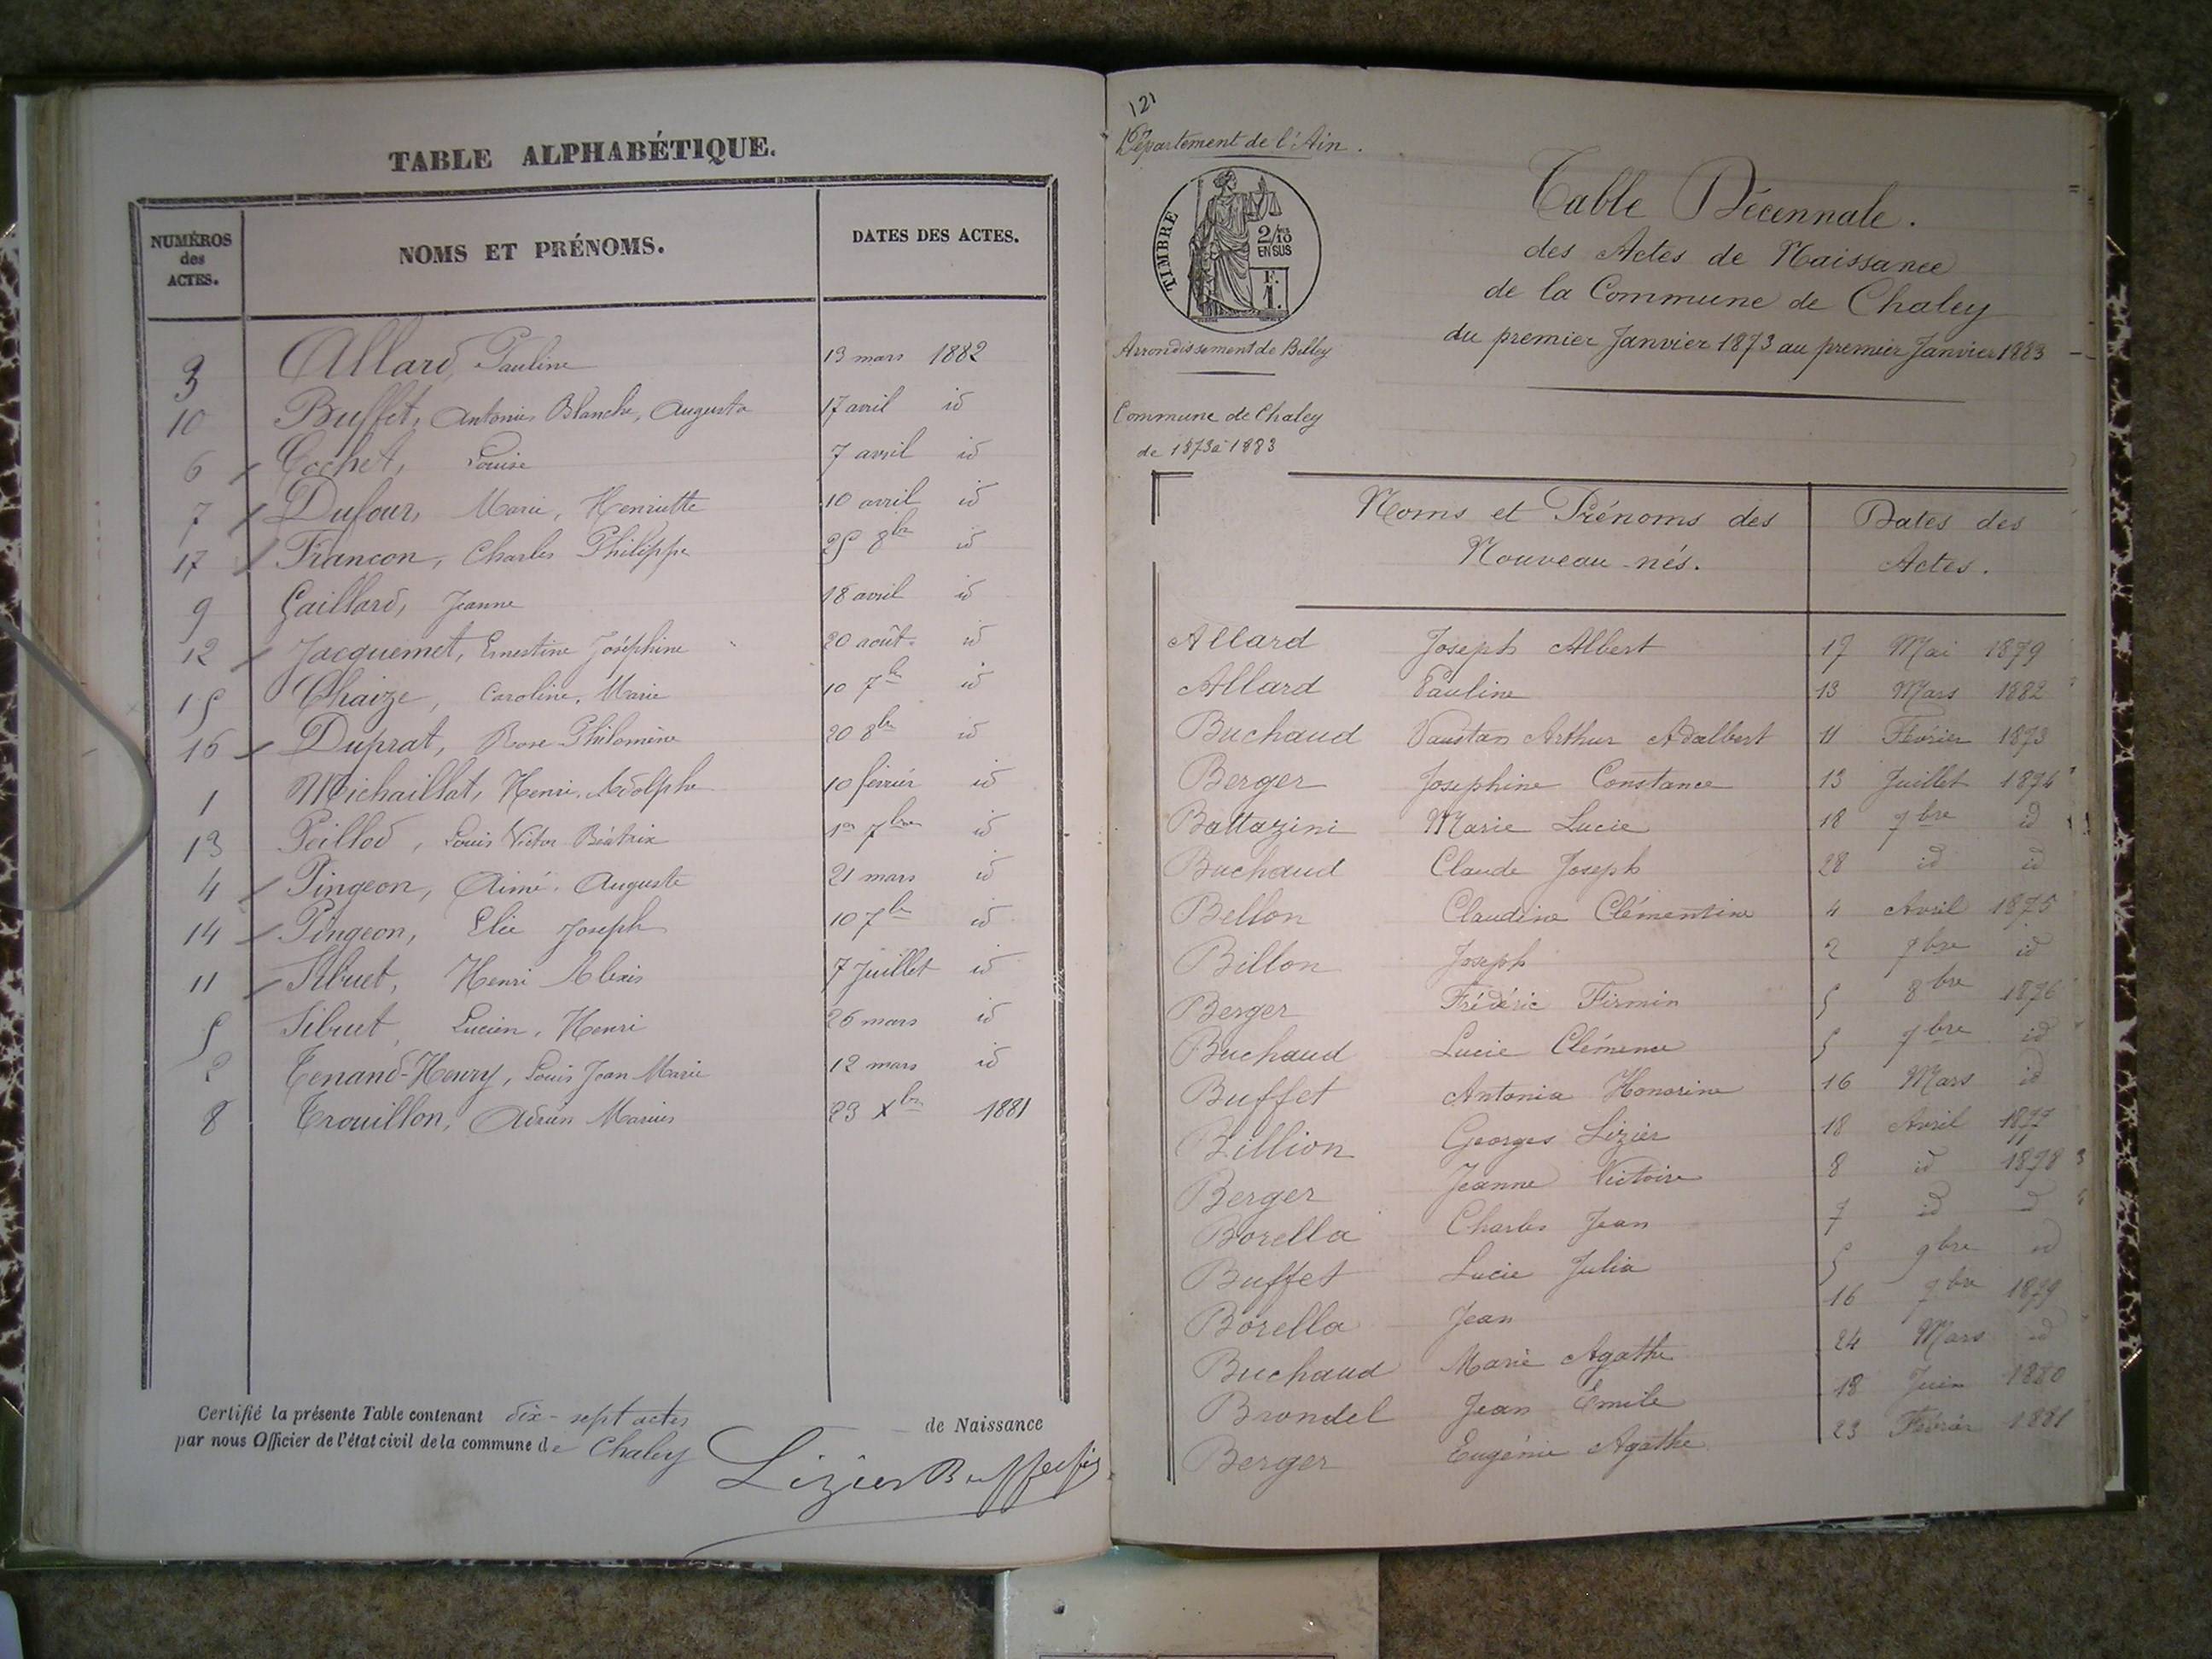 TABLE ALPHABÉTIQUE.
NUMÉROS des ACTES.
NOMS ET PRÉNOMS.
DATES DES ACTES.
3 Allard, Pauline 13 mars 1882
10 Buffet, Antonie Blanche, Augusta 17 avril id
6 Cochet, Louise 7 avril id
7 Dufour, Marie, Henriette 10 avril id
17 Francon, Charles Philippe 25 8bre id
9 Gaillard, Jeanne 18 avril id
12 Jacquemet, Ernestine Joséphine 20 août id
15 Chaize, Caroline, Marie 10 7bre id
16 Duprat, Rose Philomène 20 8bre id
1 Michaillat, Henri, Adolphe 10 février id
13 Peillod, Louis Victor Béatrix 1er 7bre id
4 Pingeon, Aimé, Auguste 21 mars id
14 Pingeon, Elie Joseph 10 7bre id
11 Sibuet, Henri Alexis 7 Juillet id
5 Sibuet, Lucien, Henri 26 mars id
2 Tenand-Henry, Louis Jean Marie 12 mars id
8 Trouillon, Adrien Marius 23 Xbre 1881
Certifié la présente Table contenant dix-sept actes de Naissance
par nous Officier de l'état civil de la commune de Chaley
Lizier Buffet fils
121
Département de l'Ain.
TIMBRE
2/10 EN SUS
F. 1.
Arrondissement de Belley
Commune de Chaley
de 1873 à 1883
Table Décennale.
des Actes de Naissance
de la Commune de Chaley
du premier Janvier 1873 au premier Janvier 1883
Noms et Prénoms des
Nouveau-nés.
Dates des
Actes.
Allard Joseph Albert 17 Mai 1879
Allard Pauline 13 Mars 1882
Buchaud Vaustan Arthur Adalbert 11 Février 1873
Berger Josephine Constance 13 Juillet 1874
Battazini Marie Lucie 18 9bre id
Buchaud Claude Joseph 28 id id
Bellon Claudine Clémentine 4 Avril 1875
Billon Joseph 2 9bre id
Berger Frédéric Firmin 5 8bre 1876
Buchaud Lucie Clémence 5 9bre id
Buffet Antonia Honorine 16 Mars id
Billion Georges Lizier 18 Avril 1877
Berger Jeanne Victoire 8 id 1878
Borella Charles Jean 7 id id
Buffet Lucie Julia 5 9bre id
Borella Jean 16 7bre 1879
Buchaud Marie Agathe 24 Mars id
Brondel Jean Emile 18 Juin 1880
Berger Eugénie Agathe 23 Février 1881